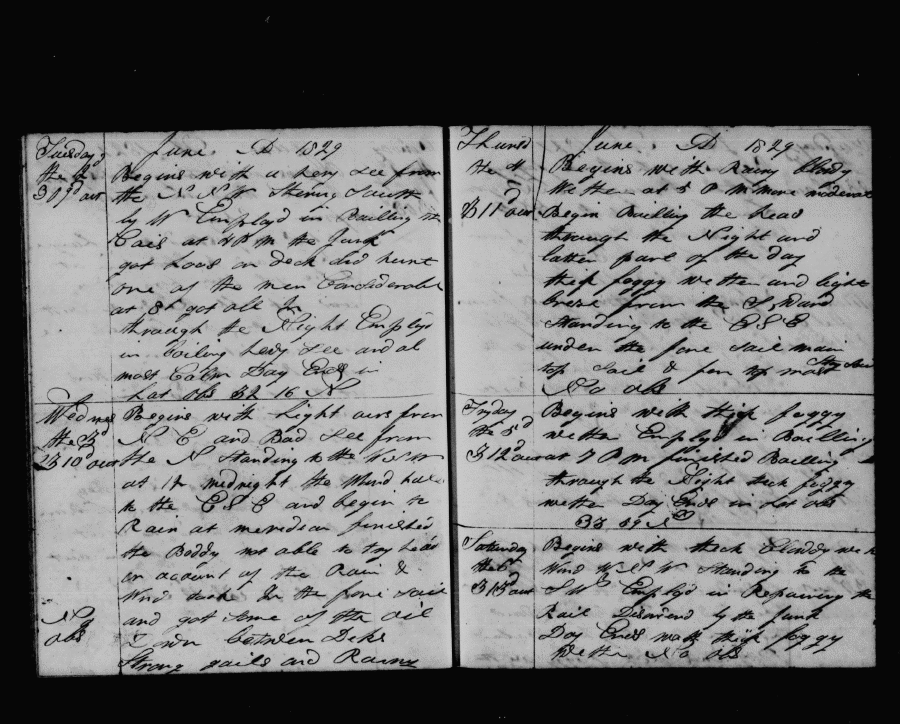 Tuesday
the 2
309d out
June AD 1829
Begins with a hevy See from
the N N W Stering South
by W Employd in Bailling the
Cais at 4 P M the Junk
got Loos on deck did heurt
one of the men Considerabl
at 8h got all In
through the Night Employd
in Boiling hevy See and al
most Calm Day Ends in
Lat obs 32 16 N
Wednes
the 3d
310d out
No
obs
Begins with Light airs from
N E and Bad See from
the N Standing to the W S W
at 12 mednight the Wind hals
to the E S E and begin to
Rain at meredian finished
the Boddy not able to try head
on account of the Rain &
Wind took In the fore Sail
and got Some of the oil
Down between Decks
Strong gails and Rainy
Thursd
the 4
311d out
June AD 1829
Begins with Rainy Clody
Wether at 5 P M more moderat
Begin Builling the head
through the Night and
latter part of the day
thik foggy wether and light
breze from the S Ward
Standing to the E S E
under the fore Sail main
top Sail &
No obs
Fryday
the 5d
312d out
Begins with thick foggy
wether Employd in Bailling
at 7 P M finished Bailling
through the Night thick foggy
wether Day Ends in Lat obs
33 59 N
Saturday
the 6d
313d out
Begins with thick Cloddy weth
Wind W N W Standing to the
S W Employd in Repairing the
Rail Disordend by the Junk
Day Ends with thik foggy
Wether No obs